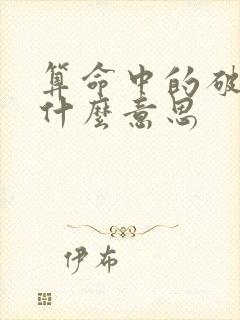 算命中的破
什麼意思
伊布